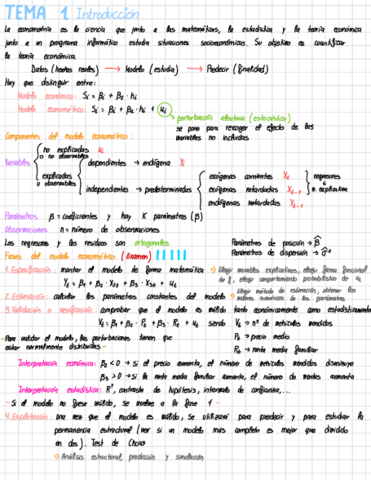 TEMA 1 Introducción
La econometría es la ciencia que junto a las matemáticas, la estadística y la teoría económica
junto a un programa informático estudia situaciones socioeconómicas. Su objetivo es cuantificar
la teoría económica.
Datos (hechos reales) → Modelo (estudia) → Predecir (finalidad)
Hay que distinguir entre:
Modelo económico: Si = β1 + β2 · hi
Modelo econométrico: Si = β1 + β2 · hi + ui
perturbación aleatoria (estocástica)
se pone para recoger el efecto de las
variables no incluidas
Componentes del modelo econométrico:
Variables
no explicadas ui
o no observables
explicadas
u observables
dependientes → endógena Yt
independientes → predeterminadas
exógenas corrientes Xt
exógenas retardadas Xt-1
endógenas retardadas Yt-1
regresores
v. explicativa
Parámetros β = coeficientes y hay K parámetros (β)
Observaciones n = número de observaciones
Los regresores y los residuos son ortogonales
Parámetros de posición → β̂
Parámetros de dispersión → σ̂²
Fases del modelo econométrico (Examen)
1. Especificación: montar el modelo de forma matemática
Yt = β1 + β2 · X2t + β3 · X3t + ut
Elegir variables explicativas, elegir forma funcional
de f, elegir comportamiento probabilístico de ut
2. Estimación: calcular los parámetros constantes del modelo
Elegir método de estimación, obtener los
valores numéricos de los parámetros
3. Validación o verificación: comprobar que el modelo es válido tanto económicamente como estadísticamente
Yt = β1 + β2 · Pt + β3 · Rt + ut siendo Yt → nº de vehículos vendidos
Pt → precio medio
Rt → renta media familiar
Para validar el modelo, las perturbaciones tienen que
estar normalmente distribuidas
Interpretación económica: β2 < 0 → si el precio aumenta, el número de vehículos vendidos disminuye
β3 > 0 → si la renta media familiar aumenta, el número de ventas aumenta
Interpretación estadística: R², contraste de hipótesis, intervalo de confianza,...
- Si el modelo no fuese válido, se vuelve a la fase 1 -
4. Explotación: una vez que el modelo es válido, se utilizará para predecir y para estudiar la
permanencia estructural (ver si un modelo más completo es mejor que dividido
en dos). Test de Chow
Análisis estructural, predicción y simulación